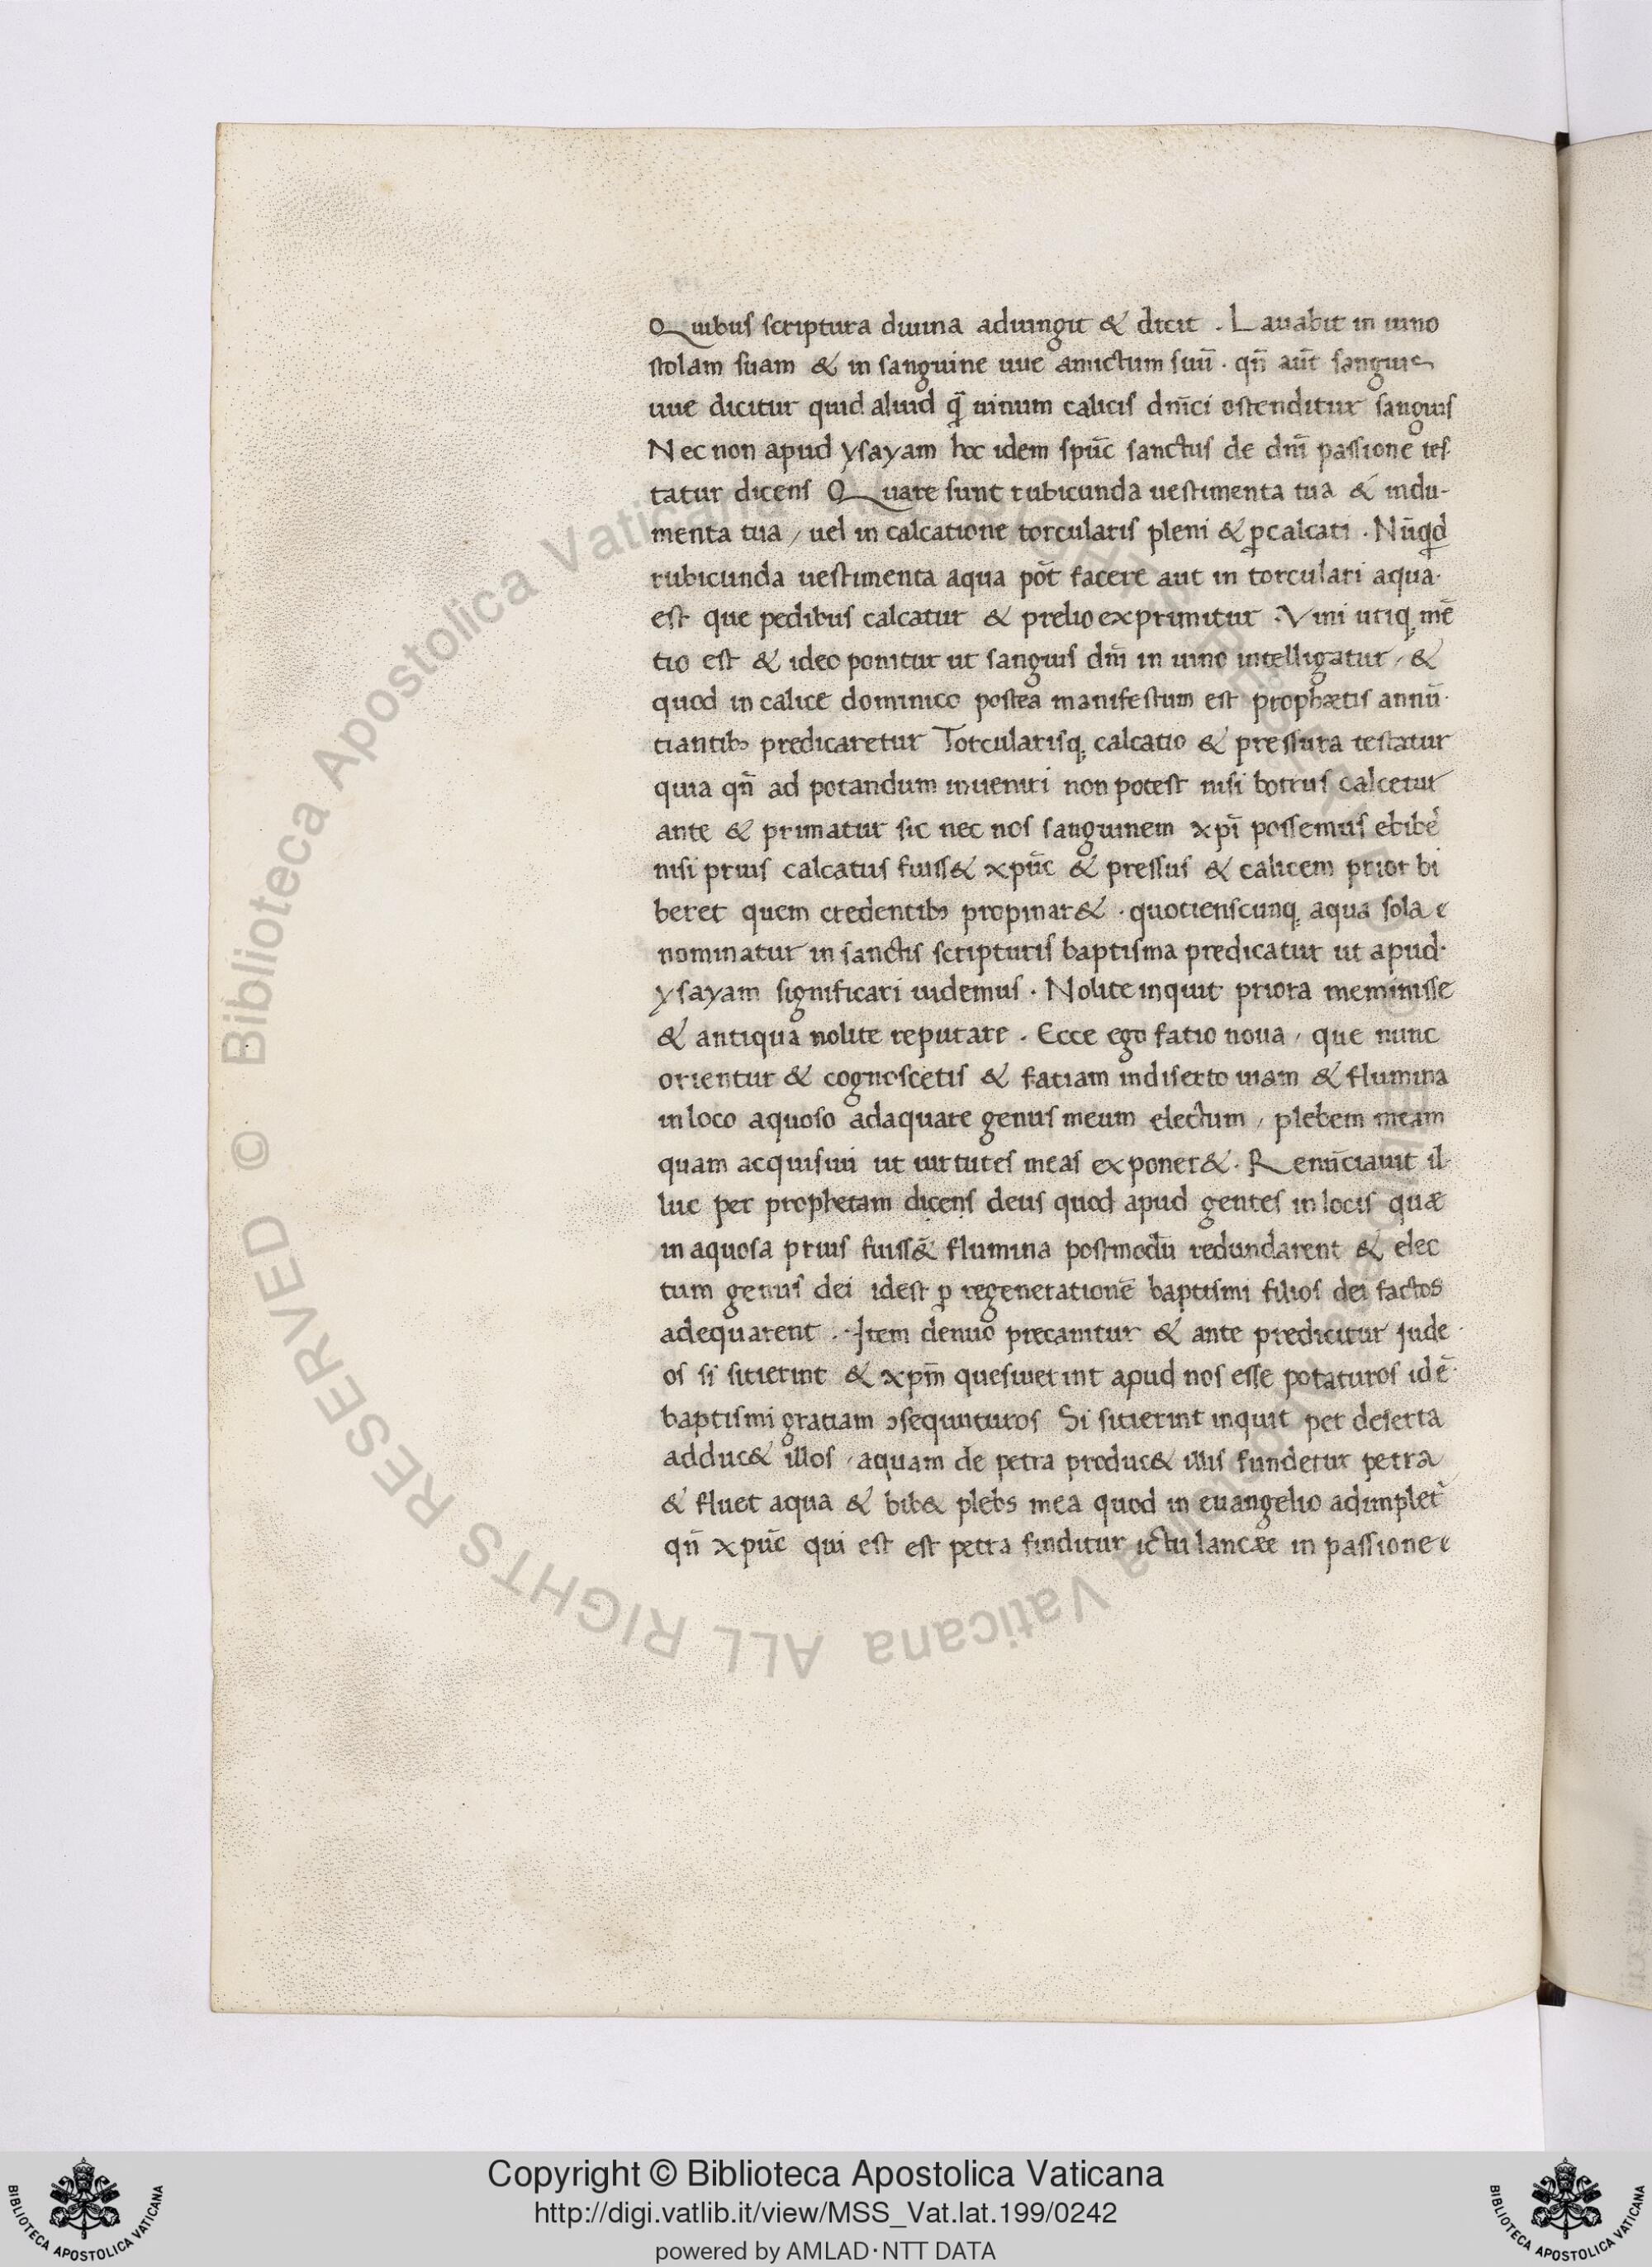 Quibus scriptura diuina adiungit & dicit . Lauabit in uino
stolam suam & in sanguine uue amictum suū . qn̄ aūt sanguis
uue dicitur quid aliud q̄ uinum calicis dn̄ici ostenditur sanguis
Nec non apud ysayam hoc idem spūc sanctus de dn̄i passione tes-
tatur dicens Quare sunt rubicunda uestimenta tua & indu-
menta tua / uel in calcatione torcularis pleni & ꝑcalcati . Nūqd
rubicunda uestimenta aqua pōt facere aut in torculari aqua
est que pedibus calcatur & prelio exprimitur . Vini utiqꝫ mē
tio est & ideo ponitur ut sanguis dn̄i in uino intelligatur / &
quod in calice dominico postea manifestum est prophætis annū-
tiantibꝫ predicaretur Torcularisqꝫ calcatio & pressura testatur
quia qn̄ ad potandum inueniri non potest nisi botrus calcetur
ante & primatur sic nec nos sanguinem xp̄i possemus ebibe᷑
nisi prius calcatus fuiss& xpūc & pressus & calicem prior bi
beret quem credentibꝫ propinar& . quotienscunqꝫ aqua sola
nominatur in sanctis scripturis baptisma predicatur ut apud
ysayam significari uidemus . Nolite inquit priora meminisse
& antiqua nolite reputare . Ecce ego fatio noua / que nunc
orientur & cognoscetis & fatiam indiserto uiam & flumina
in loco aquoso adaquare genus meum electum / plebem meam
quam acquisiui ut uirtutes meas exponer& . Renūciauit il-
luc per prophetam dicens deus quod apud gentes in locis quæ
in aquosa prius fuiss&̄ flumina postmodū redundarent & elec
tum genus dei idest ꝑ regenerationē baptismi filios dei factos
adequarent . Item denuo precanitur & ante predicitur Jude
os si sitierint & xp̄m quesiuerint apud nos esse potaturos idē
baptismi gratiam ɔsequnturos Si sitierint inquit per deserta
adduc& illos / aquam de petra produc& illis fundetur petra
& fluet aqua & bib& plebs mea quod in euangelio adimplet᷑
qn̄ xpūc qui est est petra finditur ictu lancæe in passione
Copyright © Biblioteca Apostolica Vaticana
http://digi.vatlib.it/view/MSS_Vat.lat.199/0242
powered by AMLAD·NTT DATA
BIBLIOTECA APOSTOLICA VATICANA
BIBLIOTECA APOSTOLICA VATICANA
© Biblioteca Apostolica Vaticana ALL RIGHTS RESERVED